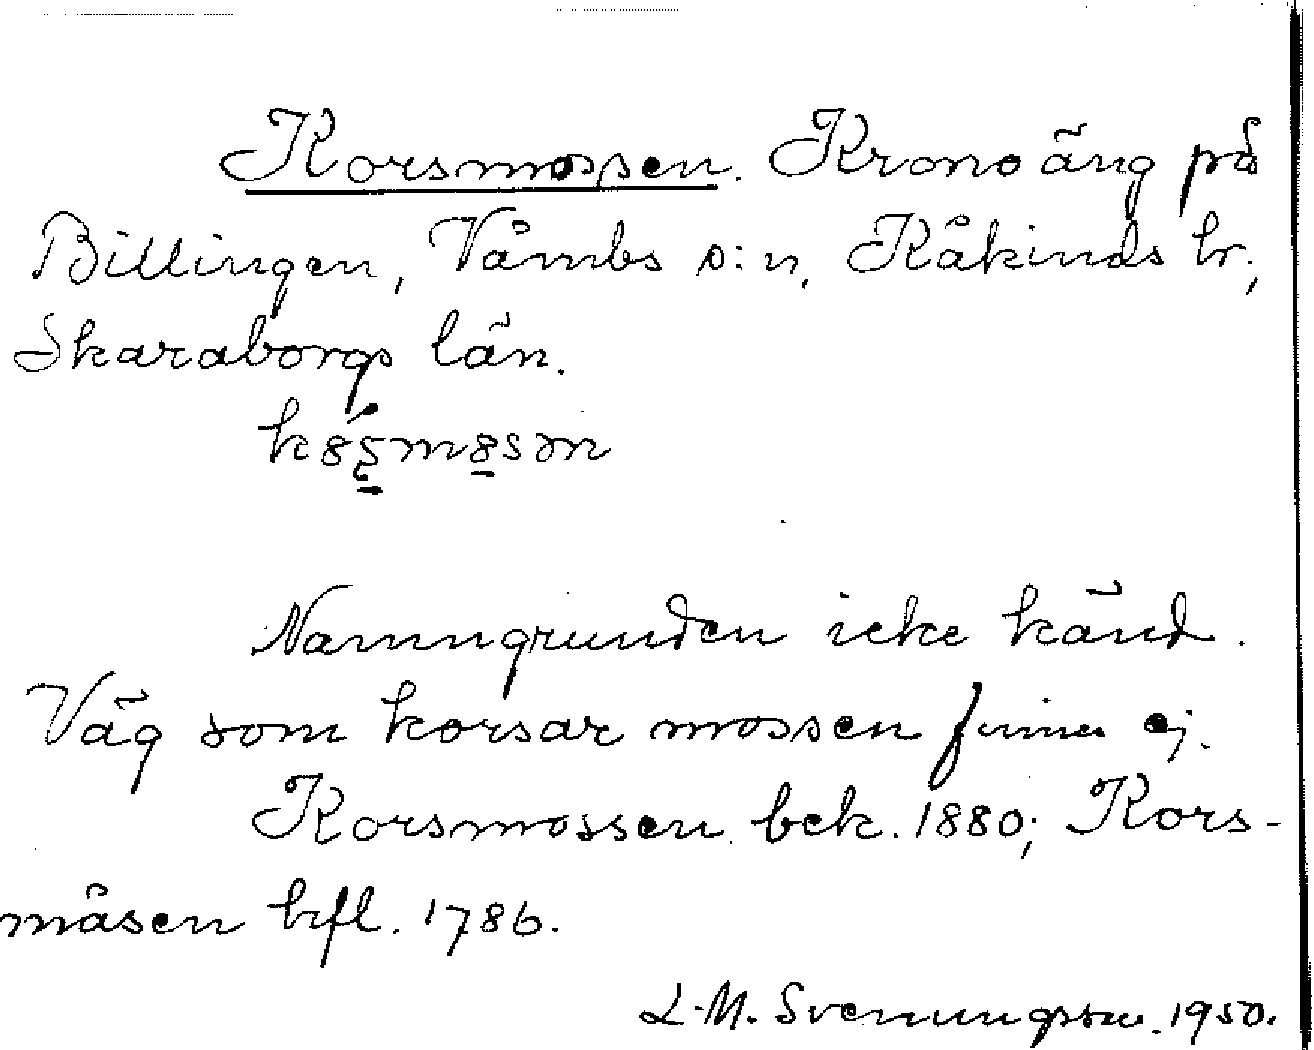 Korsmossen. Kronoäng på
Billingen, Våmbs s:n, Kåkinds hr;
Skaraborgs län.
Namngrunden icke känd.
Väg som korsar mossen finnes ej.
Korsmossen bek. 1880; Kors-
måsen hfl. 1786.
L-M. Svenungsson. 1950.